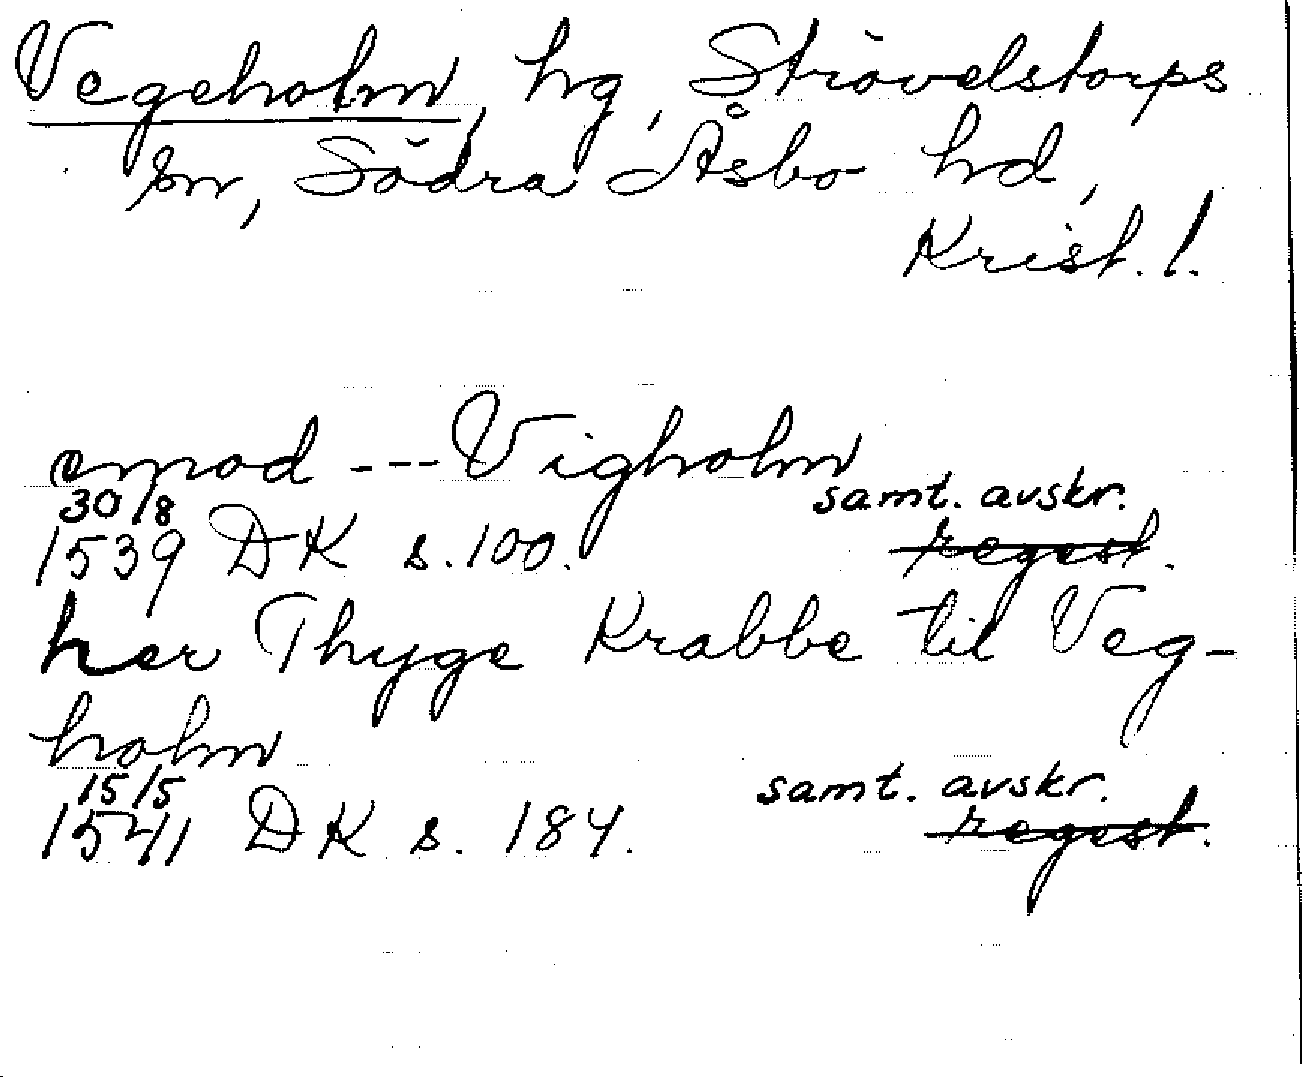 Vegeholm, hg, Strövelstorps
sn, Södra Åsbo hd,
Krist. l.
emod --- Vigholm
30/8 samt. avskr.
1539 DK s. 100. regest.
her Thyge Krabbe til Veg-
holm
15/5 samt. avskr.
1541 DK s. 184. regest.